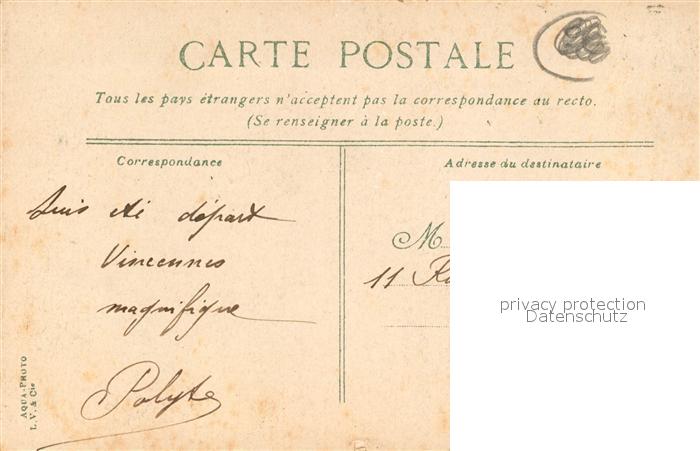 CARTE POSTALE
Tous les pays étrangers n'acceptent pas la correspondance au recto.
(Se renseigner à la poste.)
Correspondance
Adresse du destinataire
Suis été départ
Vincennes
magnifique
Polyte
M
11
privacy protection
Datenschutz
AQUA-PHOTO
L. V. & Cie